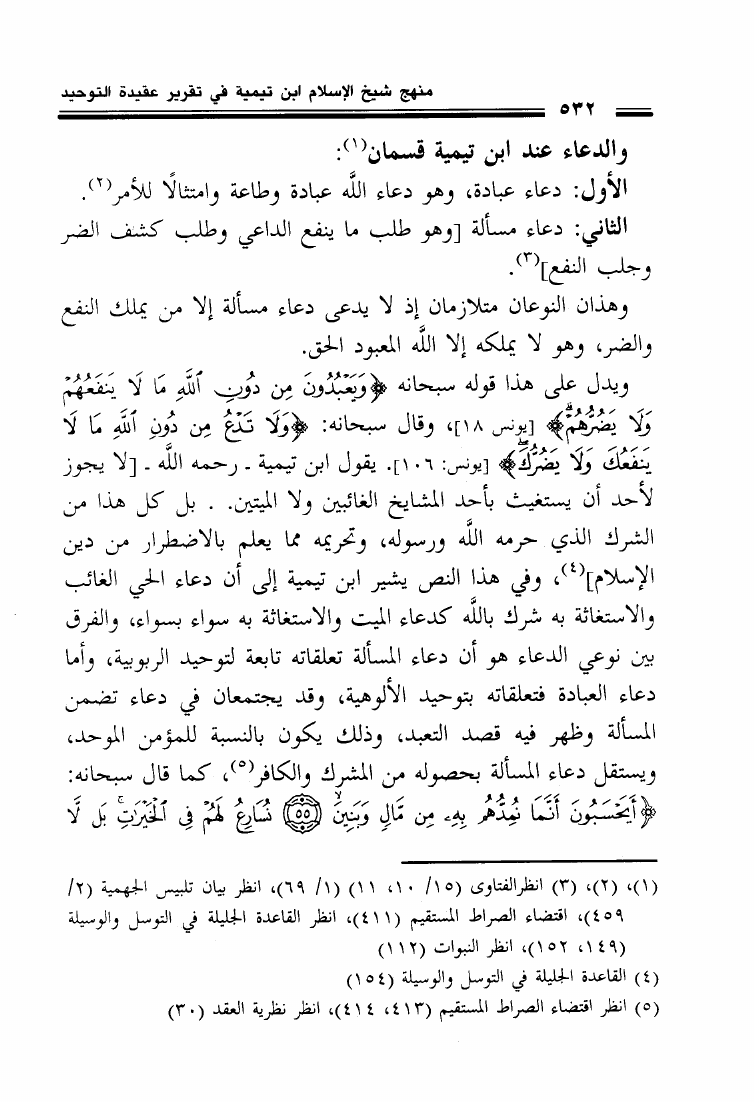 منهج شيخ الإسلام ابن تيمية في تقرير عقيدة التوحيد
٥٣٢
والدعاء عند ابن تيمية قسمان(١):
الأول: دعاء عبادة، وهو دعاء اللَّه عبادة وطاعة وامتثالًا للأمر(٢).
الثاني: دعاء مسألة [وهو طلب ما ينفع الداعي وطلب كشف الضر
وجلب النفع](٣).
وهذان النوعان متلازمان إذ لا يدعى دعاء مسألة إلا من يملك النفع
والضر، وهو لا يملكه إلا اللَّه المعبود الحق.
ويدل على هذا قوله سبحانه ﴿وَيَعْبُدُونَ مِن دُونِ ٱللَّهِ مَا لَا يَنفَعُهُمْ
وَلَا يَضُرُّهُمْ﴾ [يونس ١٨]، وقال سبحانه: ﴿وَلَا تَدْعُ مِن دُونِ ٱللَّهِ مَا لَا
يَنفَعُكَ وَلَا يَضُرُّكَۖ﴾ [يونس: ١٠٦]. يقول ابن تيمية ـ رحمه اللَّه ـ [لا يجوز
لأحد أن يستغيث بأحد المشايخ الغائبين ولا الميتين. . بل كل هذا من
الشرك الذي حرمه اللَّه ورسوله، وتحريمه مما يعلم بالاضطرار من دين
الإسلام](٤)، وفي هذا النص يشير ابن تيمية إلى أن دعاء الحي الغائب
والاستغاثة به شرك باللَّه كدعاء الميت والاستغاثة به سواء بسواء، والفرق
بين نوعي الدعاء هو أن دعاء المسألة تعلقاته تابعة لتوحيد الربوبية، وأما
دعاء العبادة فتعلقاته بتوحيد الألوهية، وقد يجتمعان في دعاء تضمن
المسألة وظهر فيه قصد التعبد، وذلك يكون بالنسبة للمؤمن الموحد،
ويستقل دعاء المسألة بحصوله من المشرك والكافر(٥)، كما قال سبحانه:
﴿أَيَحْسَبُونَ أَنَّمَا نُمِدُّهُم بِهِۦ مِن مَّالٍ وَبَنِينَۙ ٥٥ نُسَارِعُ لَهُمْ فِى ٱلْخَيْرَٰتِۚ بَل لَّا
(١)، (٢)، (٣) انظرالفتاوى (١٥/ ١٠، ١١) (١/ ٦٩)، انظر بيان تلبيس الجهمية (٢/
٤٥٩)، اقتضاء الصراط المستقيم (٤١١)، انظر القاعدة الجليلة في التوسل والوسيلة
(١٤٩، ١٥٢)، انظر النبوات (١١٢)
(٤) القاعدة الجليلة في التوسل والوسيلة (١٥٤)
(٥) انظر اقتضاء الصراط المستقيم (٤١٣، ٤١٤)، انظر نظرية العقد (٣٠)